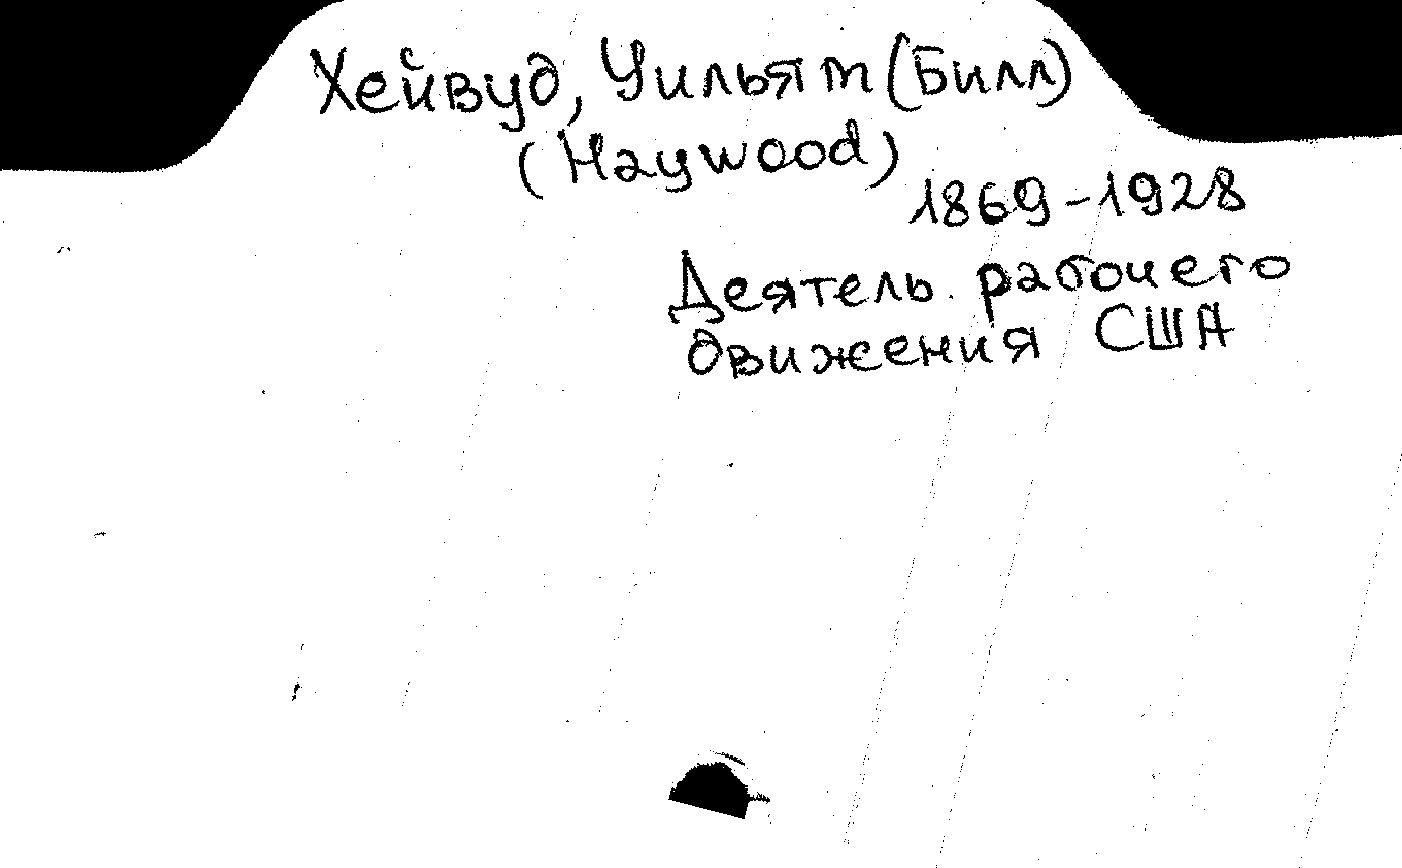 Хейвуд, Уильям (Билл)
(Haywood)
1869-1928
Деятель рабочего
движения США